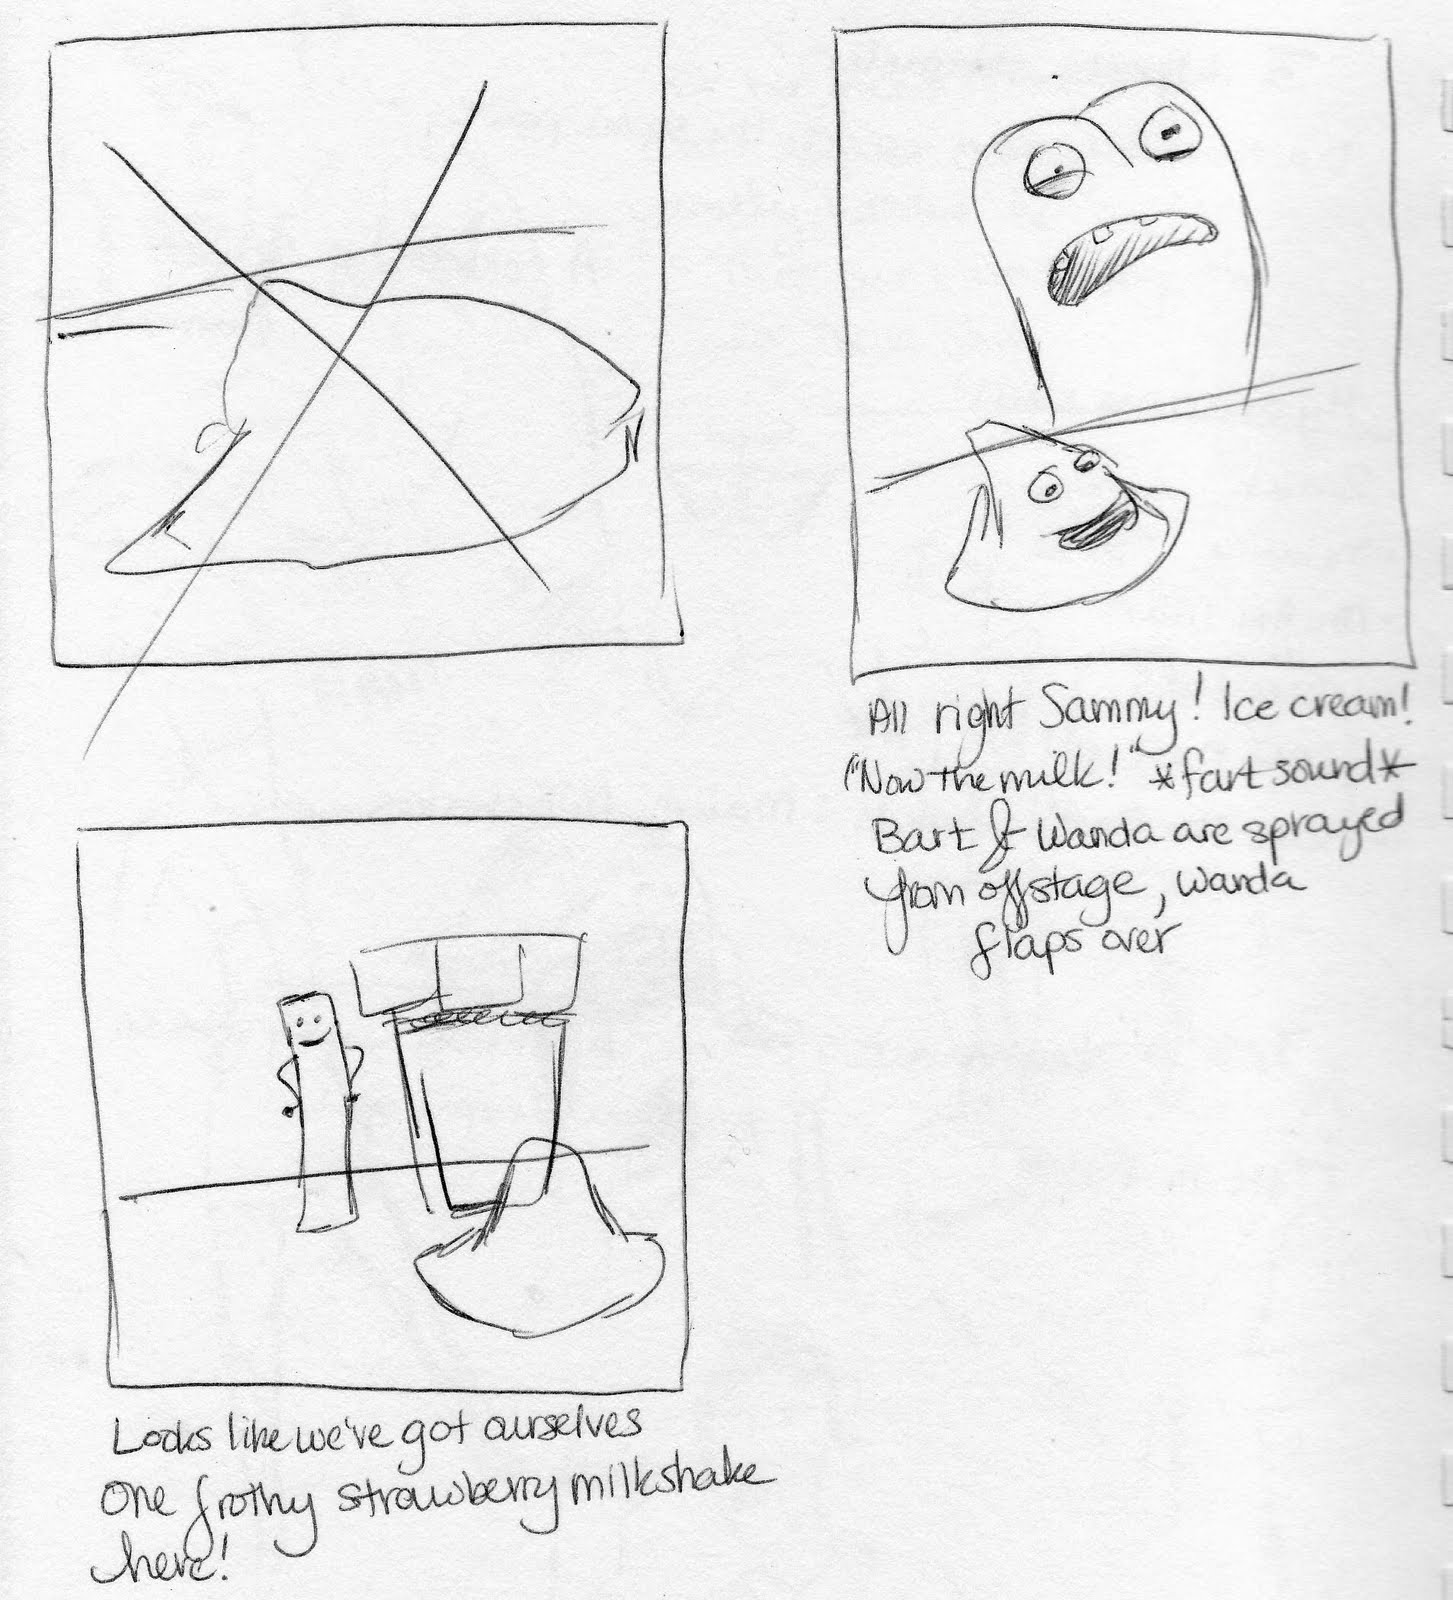 All right Sammy! Ice cream!
("Now the milk!" *fart sound*
Bart & Wanda are sprayed
from offstage, Wanda
flaps over
Looks like we've got ourselves
One frothy strawberry milkshake
here!